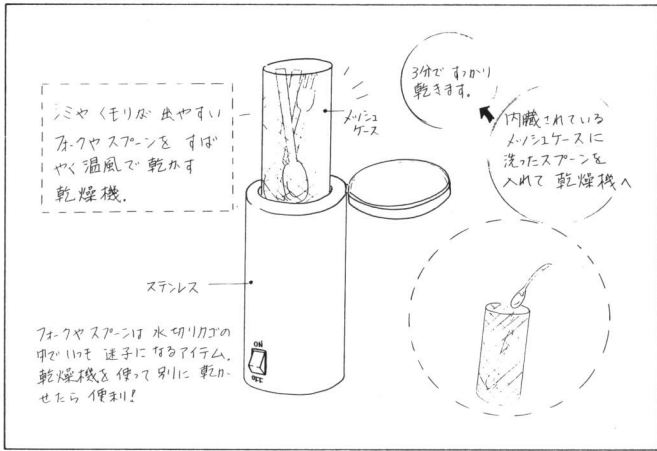 シミやくモリが出やすい
フォークやスプーンをすば
やく温風で乾かす
乾燥機.
メッシュ
ケース
3分ですっかり
乾きます。
内臓されている
メッシュケースに
洗ったスプーンを
入れて乾燥機へ
ステンレス
フォークやスプーンは水切りカゴの
中でいつも迷子になるアイテム.
乾燥機を使って別に乾か
せたら便利!
ON
OFF